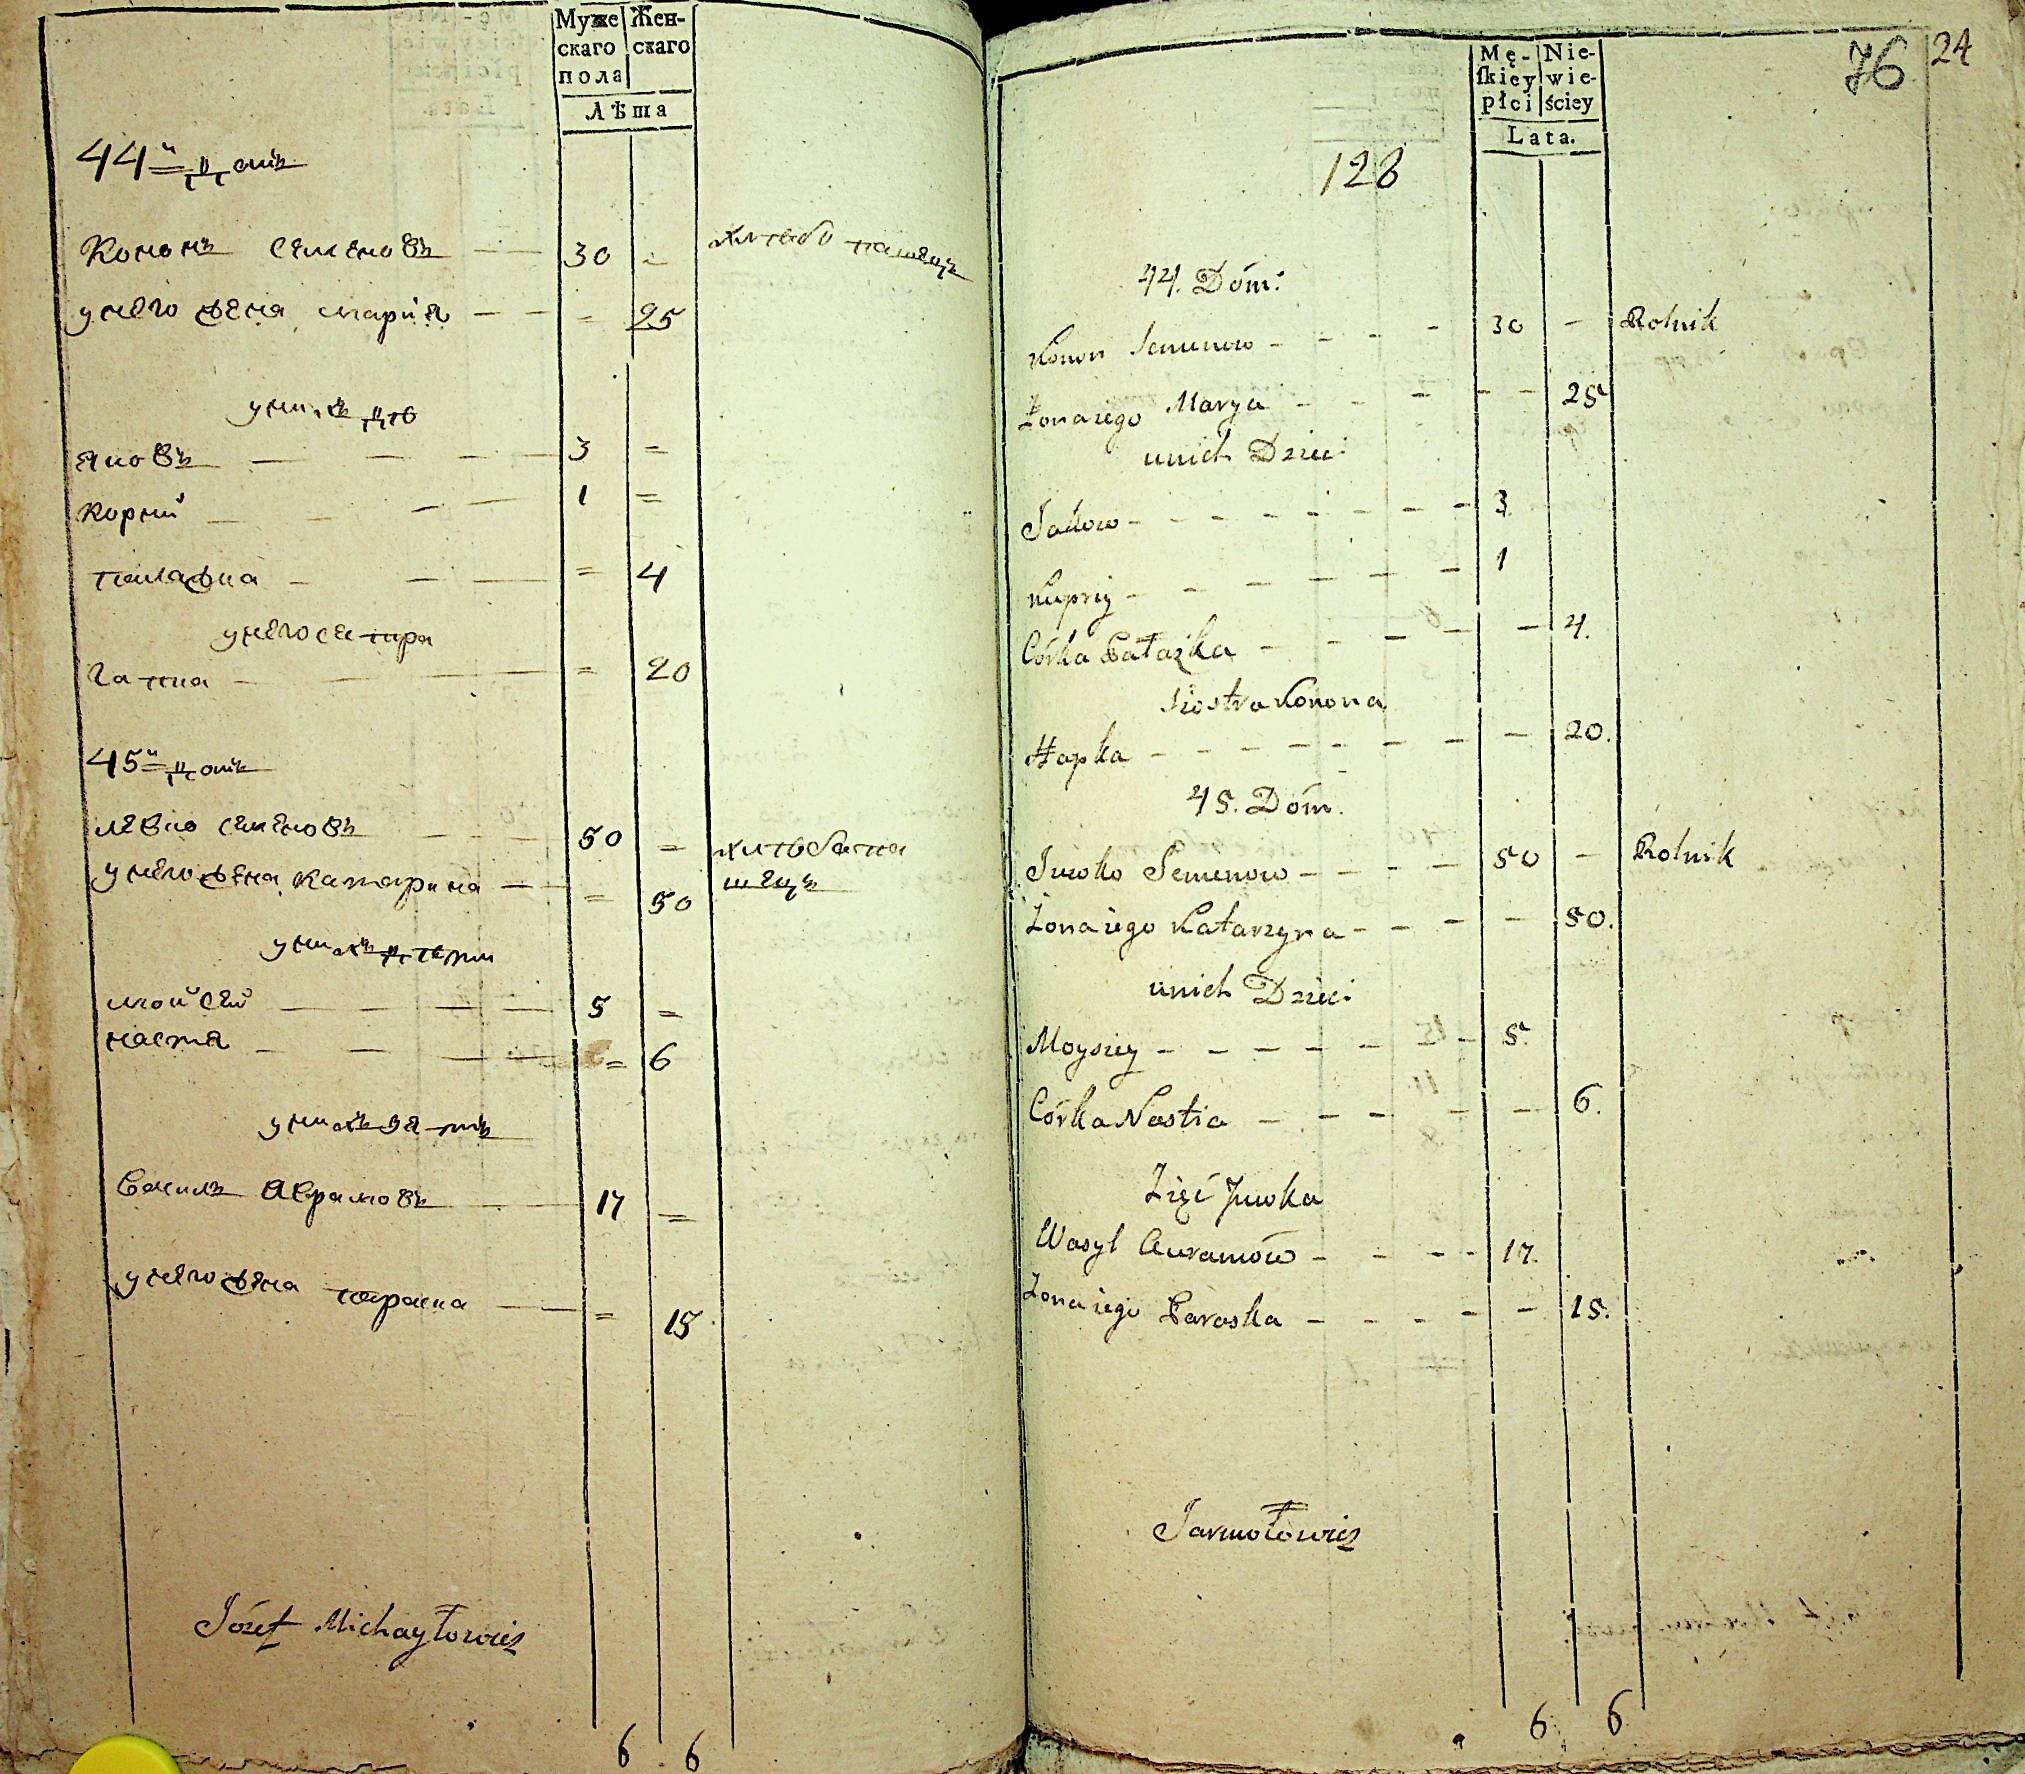 Муже Жен-
скаго скаго
пола
Лѣта
44й домъ
Кононъ Семеновъ 30 =
у него жена Мария = 25
у нихъ дѣ
Яковъ 3 =
Корнiй 1 =
Палажка = 4
у него сестра
Гапка = 20
45й домъ
Левко Семеновъ 50 = хлѣбопа
шецъ
у него жена Катарина = 50
у нихъ дѣти
Мойсей 5 =
Настя = 6
у нихъ зять
Василь Аврамовъ 17 =
у него жена Параска = 15
Józef Michayłowicz
6 6
76 24
Mę- Nie-
ſkiey wie-
płci ściey
Lata.
128
44. Dóm:
Konon Semenow - - - - 30 - Rolnik
Żona iego Marya - - - - - 25
u nich Dzieci
Jakow - - - - - - - - 3
Kupriy - - - - - - 1
Córka Pałażka - - - - - 4.
Siostra Konona
Hapka - - - - - - - - 20.
45. Dóm.
Iwko Semenow - - - - 50 - Rolnik
Żona iego Katarzyna - - - - 50.
u nich Dzieci
Moysiey - - - - - - - 5.
Córka Nastia - - - - - 6.
Zięć Iwka
Wasyl Auramow - - - - 17.
Żona iego Paraska - - - - - 15.
Jarmołowicz
6 6